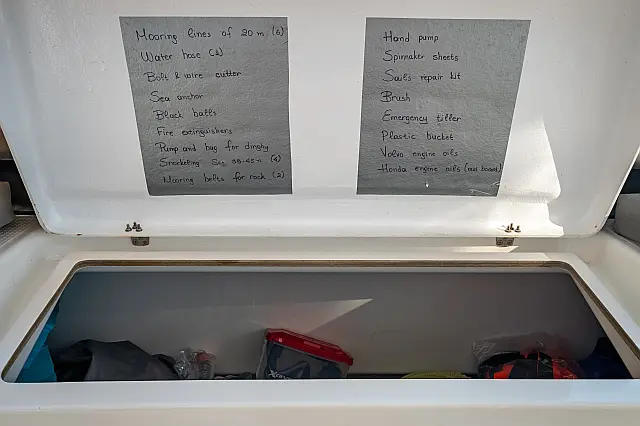 Mooring lines of 20 m (6)
Water hose (2)
Bolt & wire cutter
Sea anchor
Black balls
Fire extinguishers
Pump and bag for dinghy
Snorkeling
Mooring belts for rock (2)
Hand pump
Spinnaker sheets
Sails repair kit
Brush
Emergency tiller
Plastic bucket
Volvo engine oils
Honda engine oils